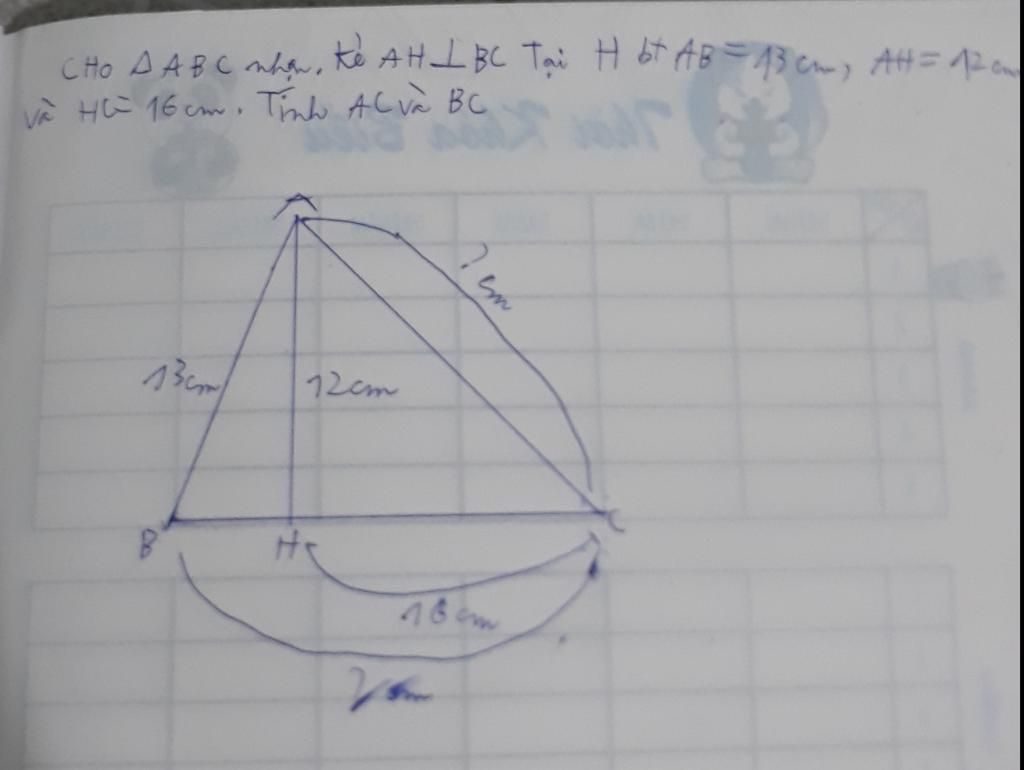 CHO Δ ABC nhọn. Kẻ AH ⊥ BC Tại H bt AB = 13 cm, AH = 12 cm
và HC = 16 cm. Tính AC và BC
Thời Khóa Biểu
A
? cm
13 cm
12 cm
B
H
C
16 cm
? cm